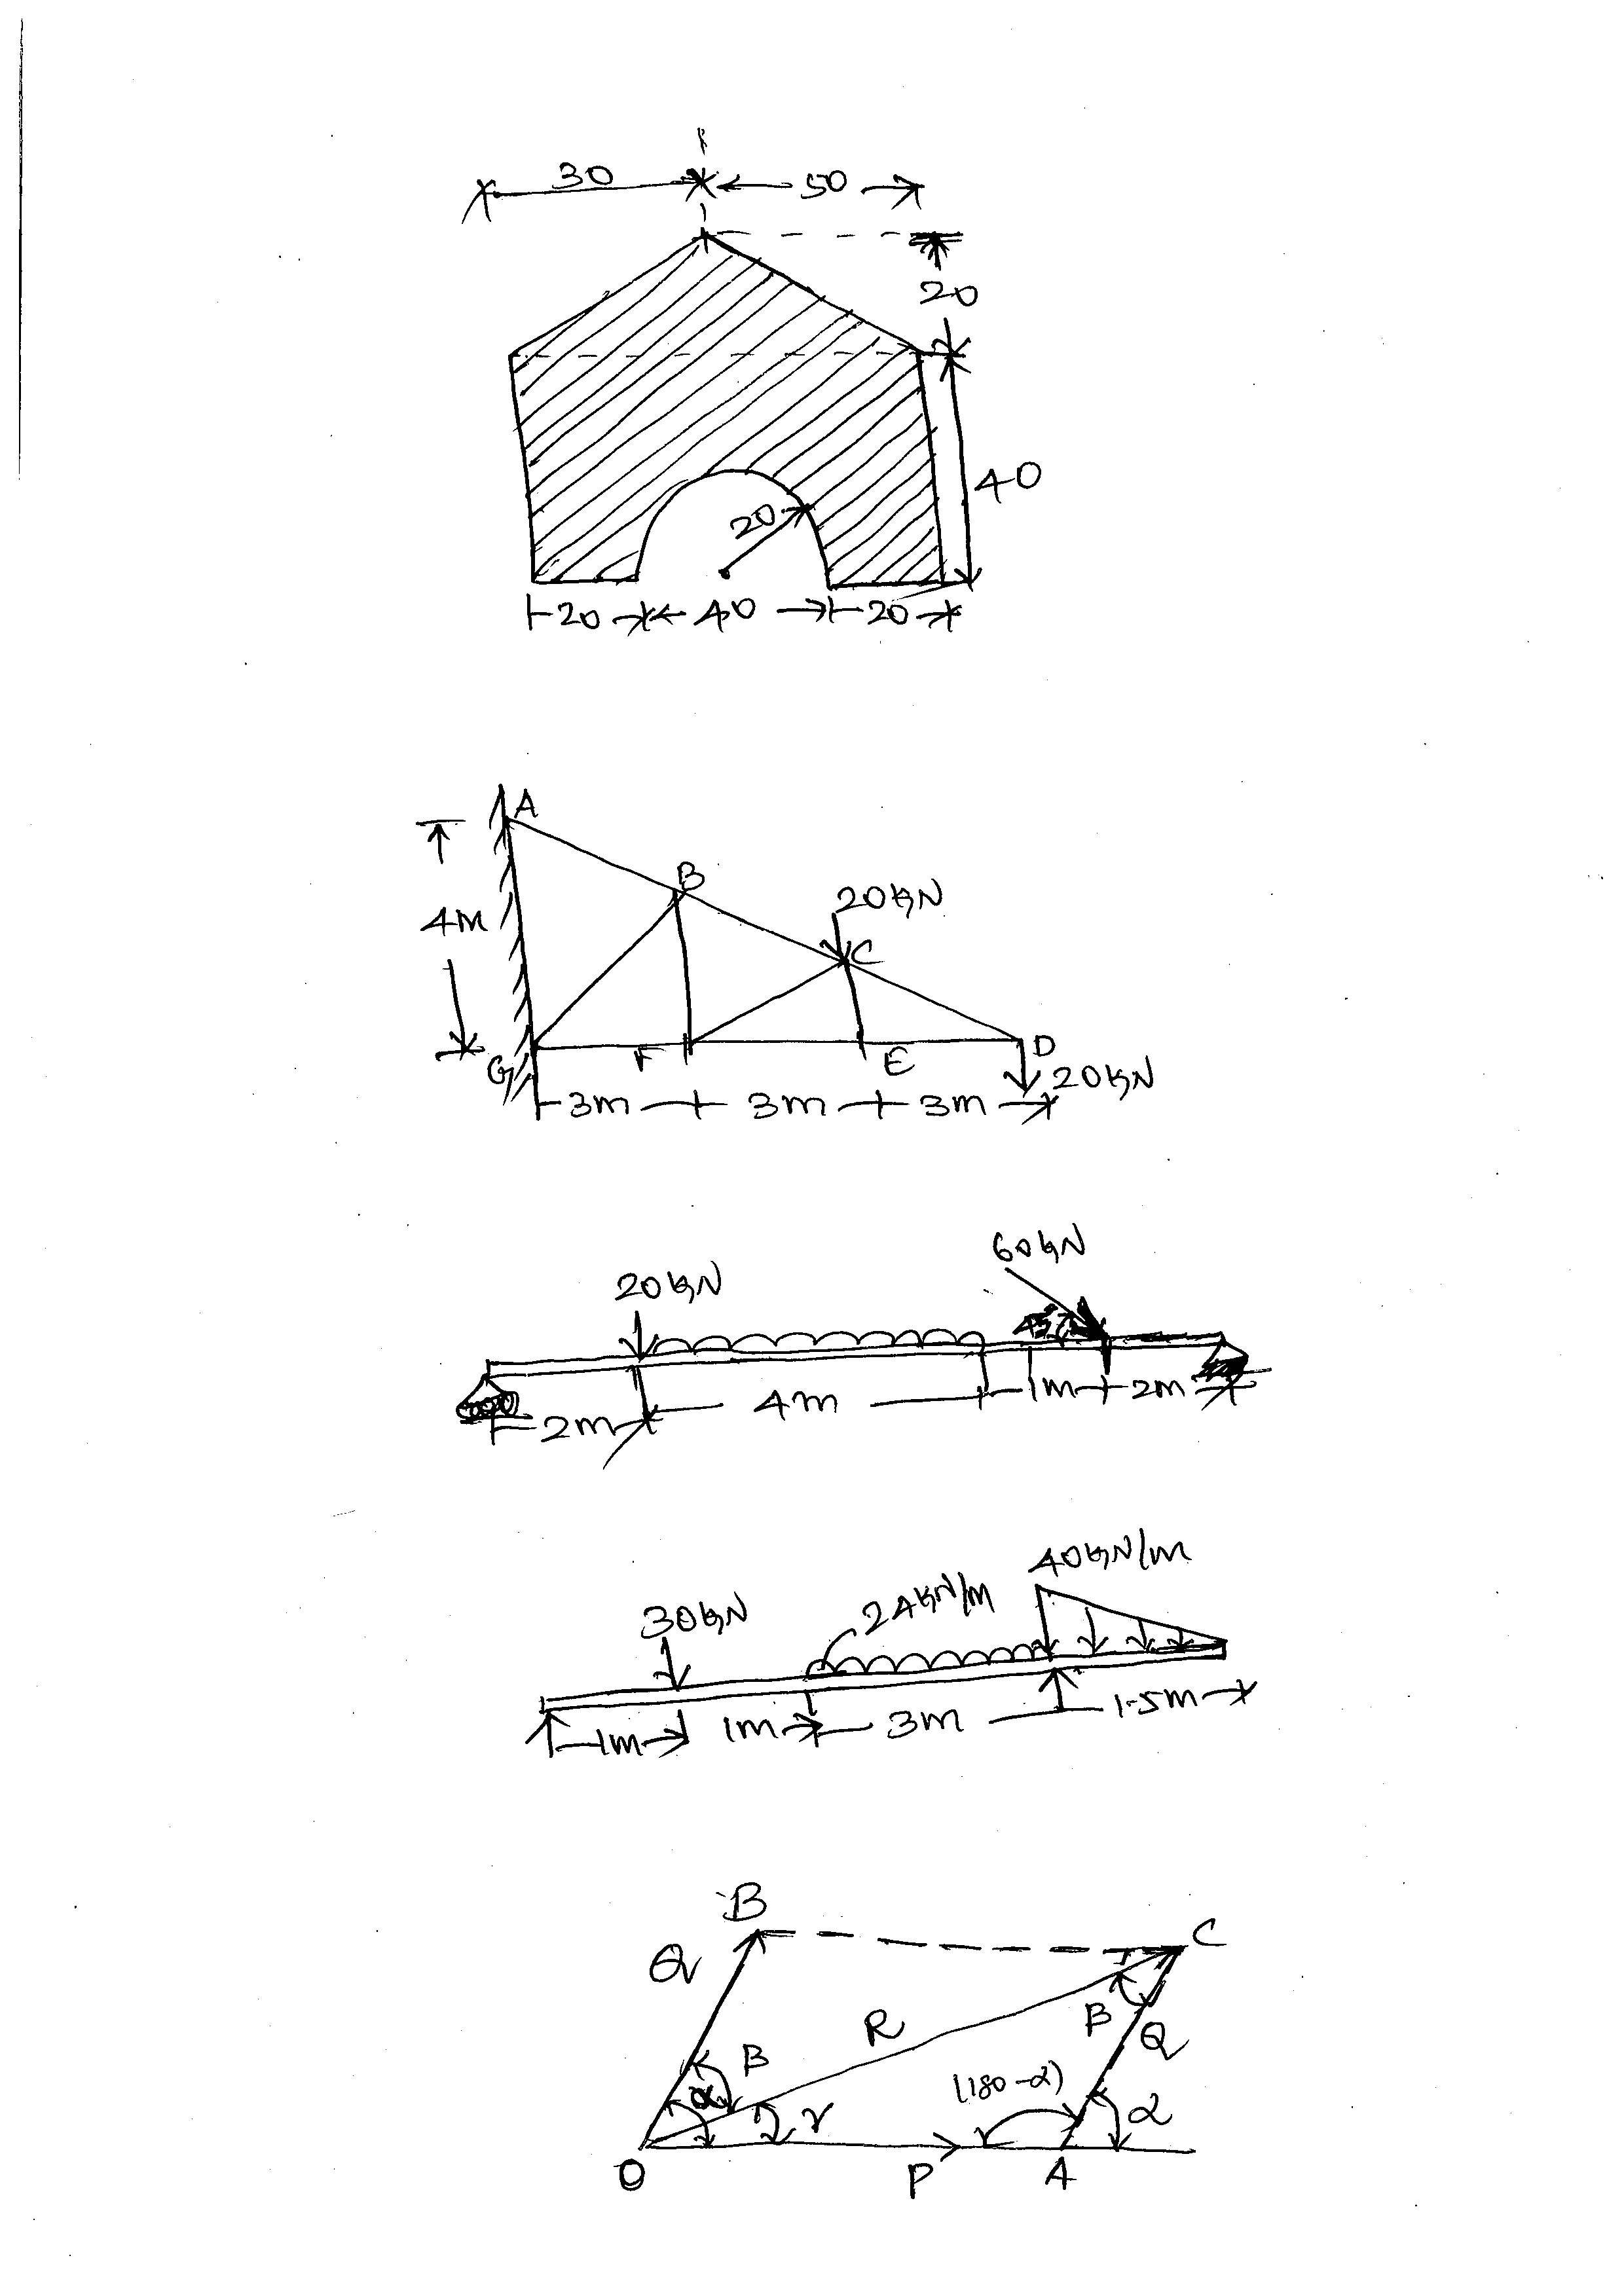 30 50
20
40
20
20 40 20
A
B
20kN
4m
C
G F E D
20kN
3m 3m 3m
60kN
20kN
45°
2m 4m 1m 2m
40kN/m
30kN 24kN/m
1m 1m 3m 1.5m
B C
Q
R β Q
β
α γ (180-α) α
O P A